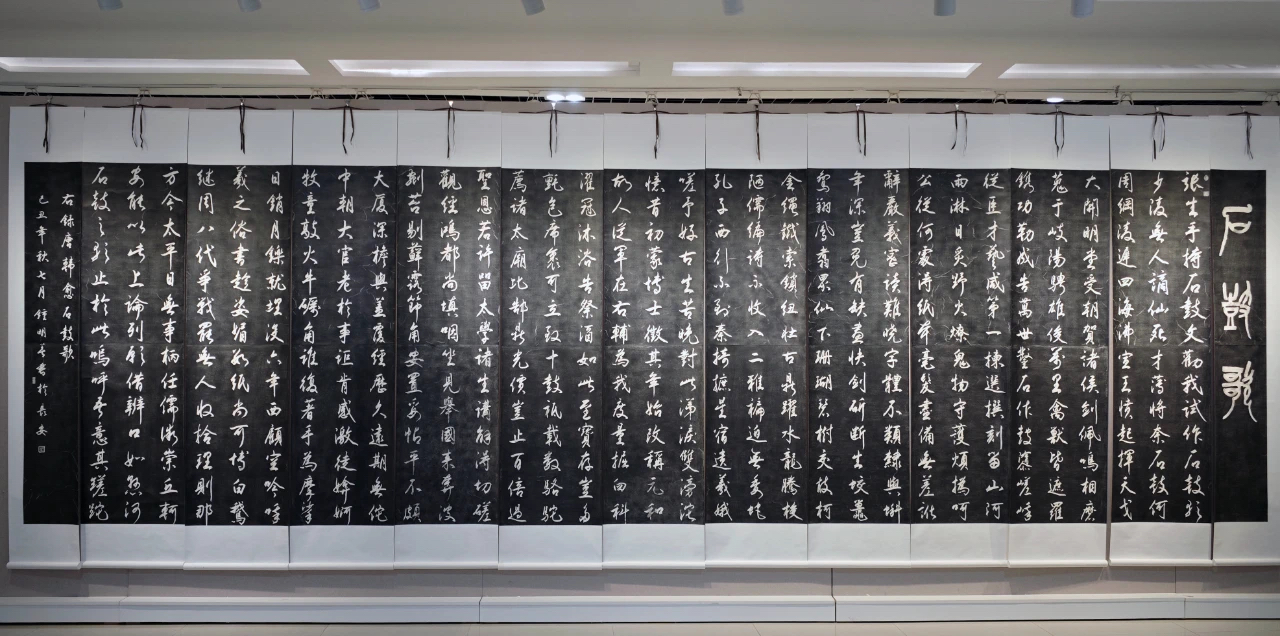 石鼓歌
張生手持石鼓文勸我試作石鼓歌
少陵無人謫仙死才薄將奈石鼓何
周綱淩遲四海沸宣王憤起揮天戈
大開明堂受朝賀諸侯劍佩鳴相磨
蒐于岐陽騁雄俊萬里禽獸皆遮羅
鐫功勒成告萬世鑿石作鼓隳嵯峨
從臣才藝咸第一揀選撰刻留山阿
雨淋日炙野火燎鬼物守護煩撝呵
公從何處得紙本毫髮盡備無差訛
辭嚴義密讀難曉字體不類隸與蝌
年深豈免有缺畫快劍斫斷生蛟鼉
鸞翔鳳翥眾仙下珊瑚碧樹交枝柯
金繩鐵索鎖紐壯古鼎躍水龍騰梭
陋儒編詩不收入二雅褊迫無委蛇
孔子西行不到秦掎摭星宿遺羲娥
嗟予好古生苦晚對此涕淚雙滂沱
憶昔初蒙博士徵其年始改稱元和
故人從軍在右輔為我度量掘臼科
濯冠沐浴告祭酒如此至寶存豈多
氈包席裹可立致十鼓祇載數駱駝
薦諸太廟比郜鼎光價豈止百倍過
聖恩若許留太學諸生講解得切磋
觀經鴻都尚填咽坐見舉國來奔波
剜苔剔蘚露節角安置妥帖平不頗
大廈深檐與蓋覆經歷久遠期無佗
中朝大官老於事詎肯感激徒媕婀
牧童敲火牛礪角誰復著手為摩挲
日銷月鑠就埋沒六年西顧空吟哦
羲之俗書趁姿媚數紙尚可博白鵝
繼周八代爭戰罷無人收拾理則那
方今太平日無事柄任儒術崇丘軻
安能以此上論列願借辯口如懸河
石鼓之歌止於此嗚呼吾意其蹉跎
右錄唐韓愈石鼓歌
己丑年秋七月鍾明善書於長安